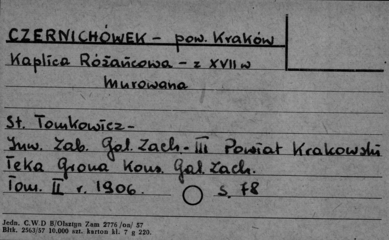 CZERNICHÓWEK - pow. Kraków
Kaplica Różańcowa - z XVII w
murowana
St. Tomkowicz -
Inw. Zab. Gal. Zach - III Powiat Krakowski
Teka Grona Kons. Gal. Zach.
Tom. II r. 1906. s. 78
Jedn. C.W.D 8/Olsztyn Zam 2776 /on/ 57
Bltk. 2563/57 10.000 szt. karton kl. 7 g 220.